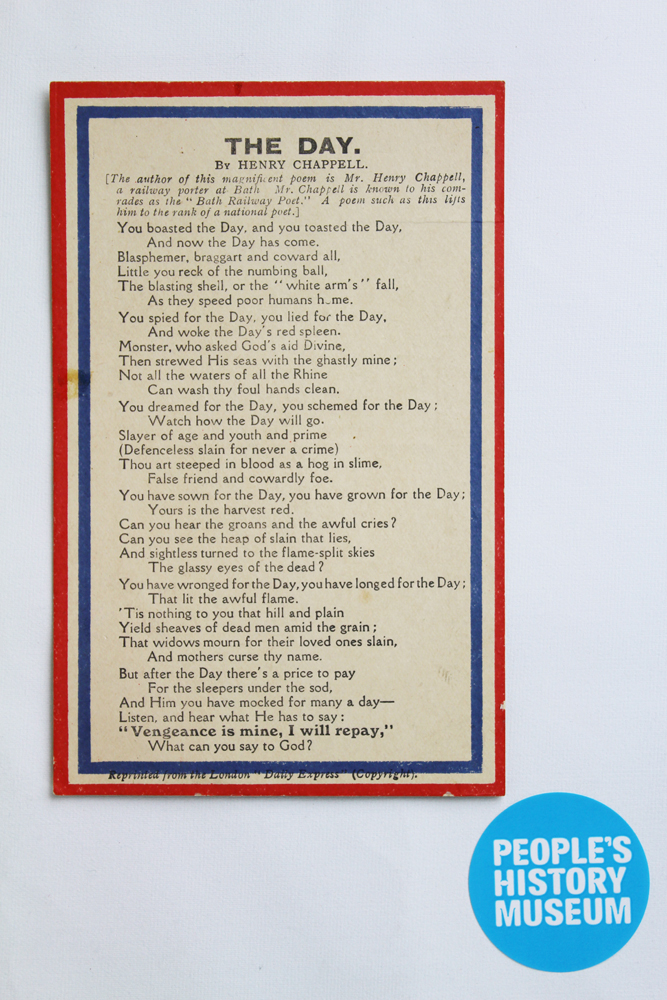 THE DAY.
By HENRY CHAPPELL.
[The author of this magnificent poem is Mr. Henry Chappell,
a railway porter at Bath Mr. Chappell is known to his com-
rades as the "Bath Railway Poet." A poem such as this lifts
him to the rank of a national poet.]
You boasted the Day, and you toasted the Day,
And now the Day has come.
Blasphemer, braggart and coward all,
Little you reck of the numbing ball,
The blasting shell, or the "white arm's" fall,
As they speed poor humans h_me.
You spied for the Day, you lied for the Day,
And woke the Day's red spleen.
Monster, who asked God's aid Divine,
Then strewed His seas with the ghastly mine;
Not all the waters of all the Rhine
Can wash thy foul hands clean.
You dreamed for the Day, you schemed for the Day;
Watch how the Day will go.
Slayer of age and youth and prime
(Defenceless slain for never a crime)
Thou art steeped in blood as a hog in slime,
False friend and cowardly foe.
You have sown for the Day, you have grown for the Day;
Yours is the harvest red.
Can you hear the groans and the awful cries?
Can you see the heap of slain that lies,
And sightless turned to the flame-split skies
The glassy eyes of the dead?
You have wronged for the Day, you have longed for the Day;
That lit the awful flame.
'Tis nothing to you that hill and plain
Yield sheaves of dead men amid the grain;
That widows mourn for their loved ones slain,
And mothers curse thy name.
But after the Day there's a price to pay
For the sleepers under the sod,
And Him you have mocked for many a day—
Listen, and hear what He has to say:
"Vengeance is mine, I will repay,"
What can you say to God?
Reprinted from the London "Daily Express" (Copyright).
PEOPLE'S
HISTORY
MUSEUM